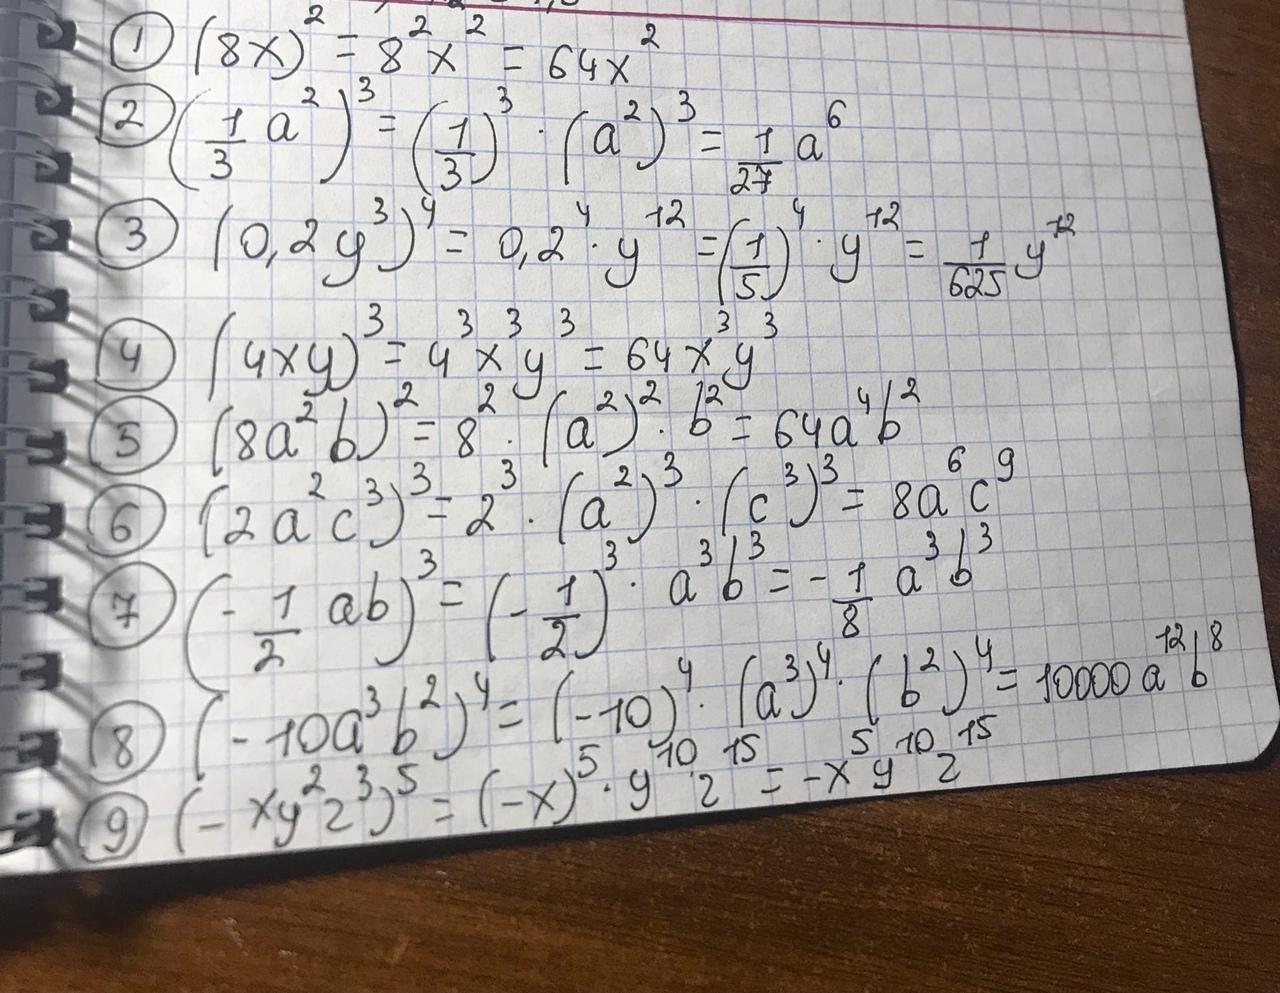 ① (8x)² = 8²x² = 64x²
② (1/3 a²)³ = (1/3)³ · (a²)³ = 1/27 a⁶
③ (0,2y³)⁴ = 0,2⁴ · y¹² = (1/5)⁴ · y¹² = 1/625 y¹²
④ (4xy)³ = 4³x³y³ = 64x³y³
⑤ (8a²b)² = 8² · (a²)² · b² = 64a⁴b²
⑥ (2a²c³)³ = 2³ · (a²)³ · (c³)³ = 8a⁶c⁹
⑦ (-1/2 ab)³ = (-1/2)³ · a³b³ = -1/8 a³b³
⑧ (-10a³b²)⁴ = (-10)⁴ · (a³)⁴ · (b²)⁴ = 10000a¹²b⁸
⑨ (-xy²z³)⁵ = (-x)⁵ · y¹⁰z¹⁵ = -x⁵y¹⁰z¹⁵